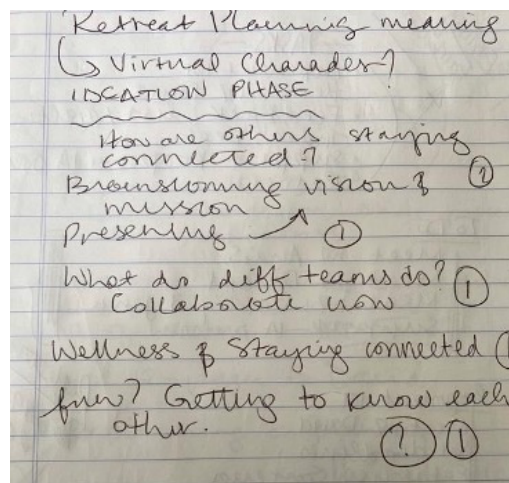 Retreat Planning meaning
↳ Virtual Charades?
IDEATION PHASE
How are others staying
connected?
Brainstorming vision & ?
mission
Presening ↗ 1
What do diff teams do? 1
Collaborate now
Wellness & Staying connected
fun? Getting to know each
other.
? 1